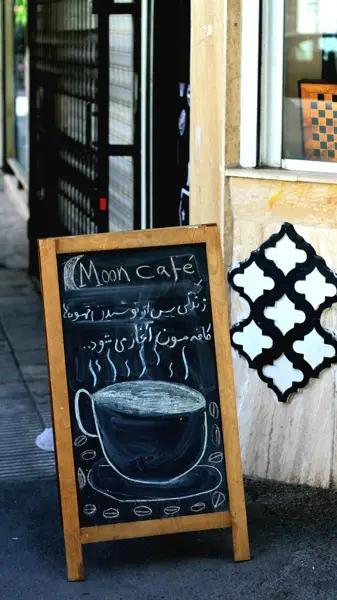 Moon café
زندگی پس از نوشیدن قهوه‌ی
کافه مون آغاز می شود..